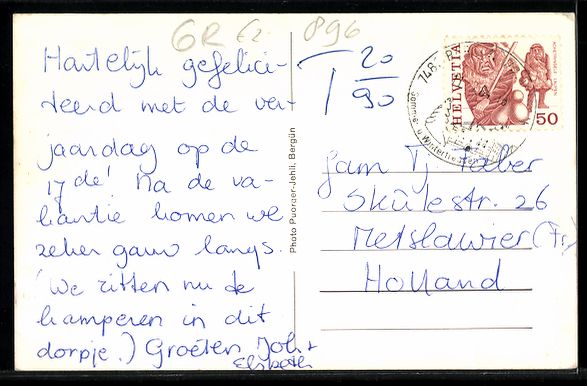 GR €2- 896
Hartelijk gefelici-
teerd met de ver-
jaardag op de
17de! Na de va-
kantie komen we
zeker gauw langs.
(We zitten nu te
kamperen in dit
dorpje.) Groeten, Joh. +
Elsbeth
Photo Puorger-Jehli, Bergün
T 20
90
HELVETIA
50
748
Sommer
u. Winter
Fam Tj. Faber
Skûlestr. 26
Metslawier (Fr.)
Holland